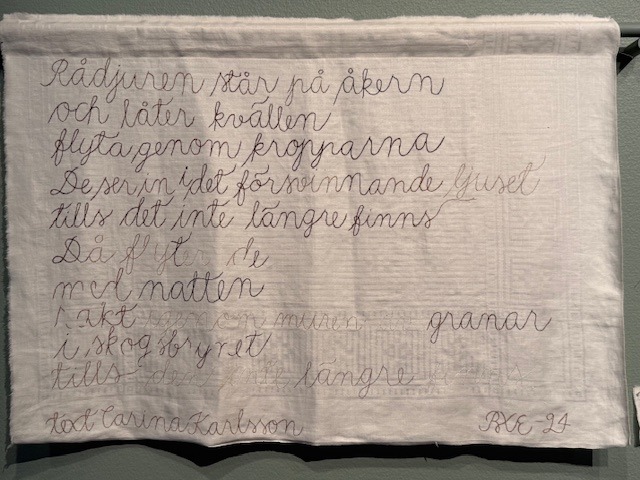 Rådjuren står på åkern
och låter kvällen
flyta genom kropparna
De ser in i det försvinnande ljuset
tills det inte längre finns
Då flyter de
med natten
rakt genom muren av granar
i skogsbrynet
tills de inte längre
text Carina Karlsson